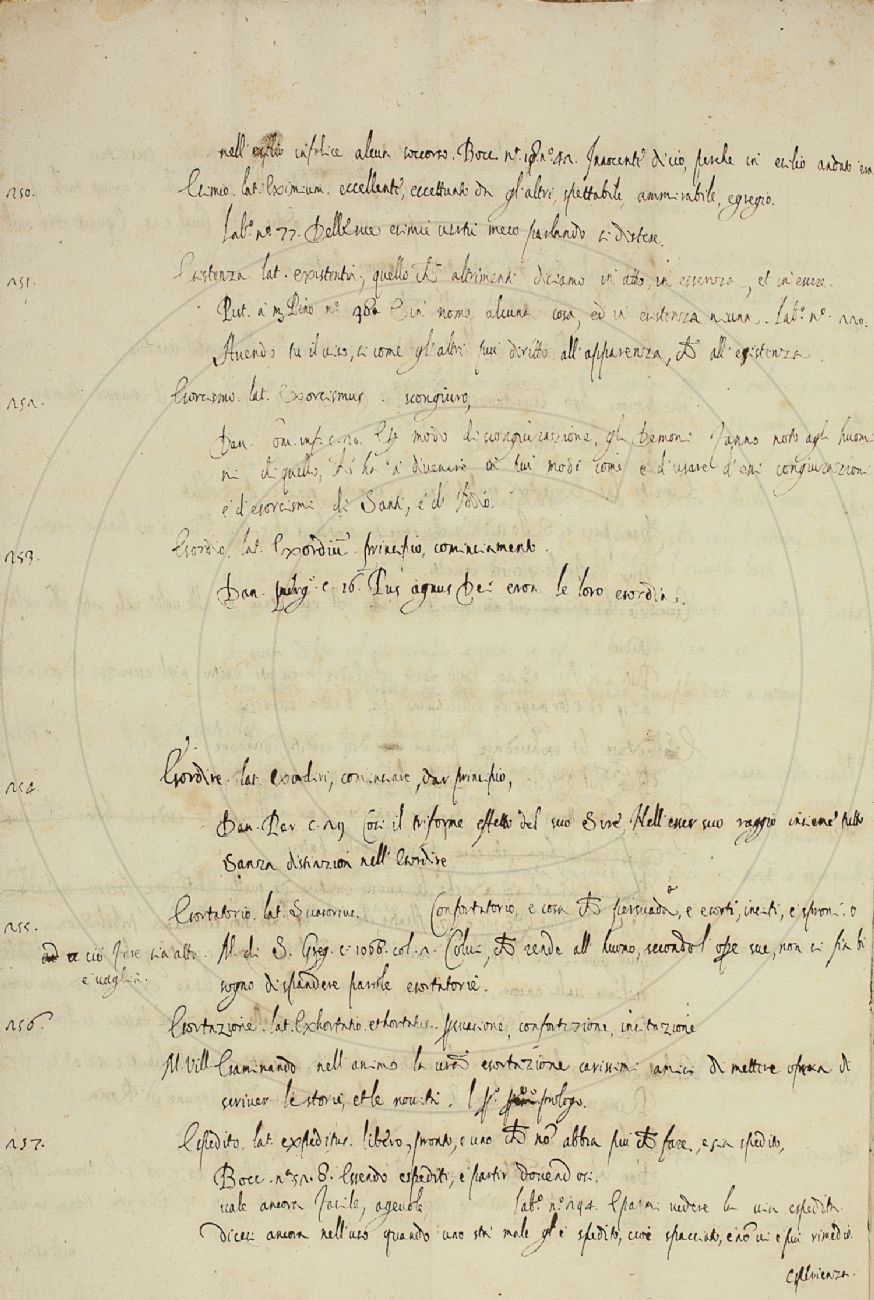 nell' esilio infelice alcun soccorso. Bocc. nº. 18. nº 42. Innocente di ciò, perche in esilio andato era
250. Esimio. lat. Eximium. eccellente, eccettuato da gl'altri, spettabile, ammirabile, egregio.
Lab.º nº 77. Delle sue esimie virtù meco parlando si distese.
251. Esistenza. lat. existentia, quello che altrimenti diciamo in atto, in essenza, et in essere.
Pist. a m Pino nº. E in nome alcuna cosa, ed in esistenza niuna. Lab.º nº. 220.
Avendo tu il viso, si come gl'altri più diritto all'apparenza, che all'esistenza.
252. Esorcismo. lat. Exorcismus. scongiuro,
Dan. Com. inf. c. 20. modo di scongiurazione, gli Demoni fanno noto agli huomi
ni di quello, che ha a divenire in lui modi come è d'usare d'essi congiurazioni
e d'esorcismi di Santi, e d'Iddio.
253. Esordio. lat. Exordiũ. principio, cominciamento.
Dan. purg. c. 16. Pur agnus Dei eron le loro esordia.
254. Esordire. lat. exordiri, cominciare, dar principio,
Dan. Par. c. 29 Così il triforme effetto del suo Sire, Nell'esser suo raggiò insieme tutto
Sanza distinzion nell'Esordire
255. Esortatorio. lat. Suasorius. Confortatorio, e cosa che persuada, e esorti, inciti, e sproni. o
a ciò fare sia atto. M. di S. Greg. c. 1066. col. 2. Colui, che rende all'huomo, secondo l'opre sue, non si fia bi
e vaglia.
sogno di spandere parole esortatorie.
256. Esortazione. lat. Exhortatio. et hortatus. persuasione, confortazione, incitazione
M. Vill. Esaminando nell'animo la vostra esortazione carissimi amici di mettere opera di
scriver le storie, et le novità. l pº. prologo.
257. Espedito. lat. expeditus. libero, pronto, e uno che nõ abbia più che fare, e sia spedito,
Bocc. nº 52. 8. Essendo espediti, e partir dovendosi.
vale ancora facile, agevole Lab.º nº 294. E parmi vedere la via espedita
Dicesi ancora nell'uso quando uno sta male gl'è spedito, cioè spacciato, e nõ vi è più rimedio.
esperienza.